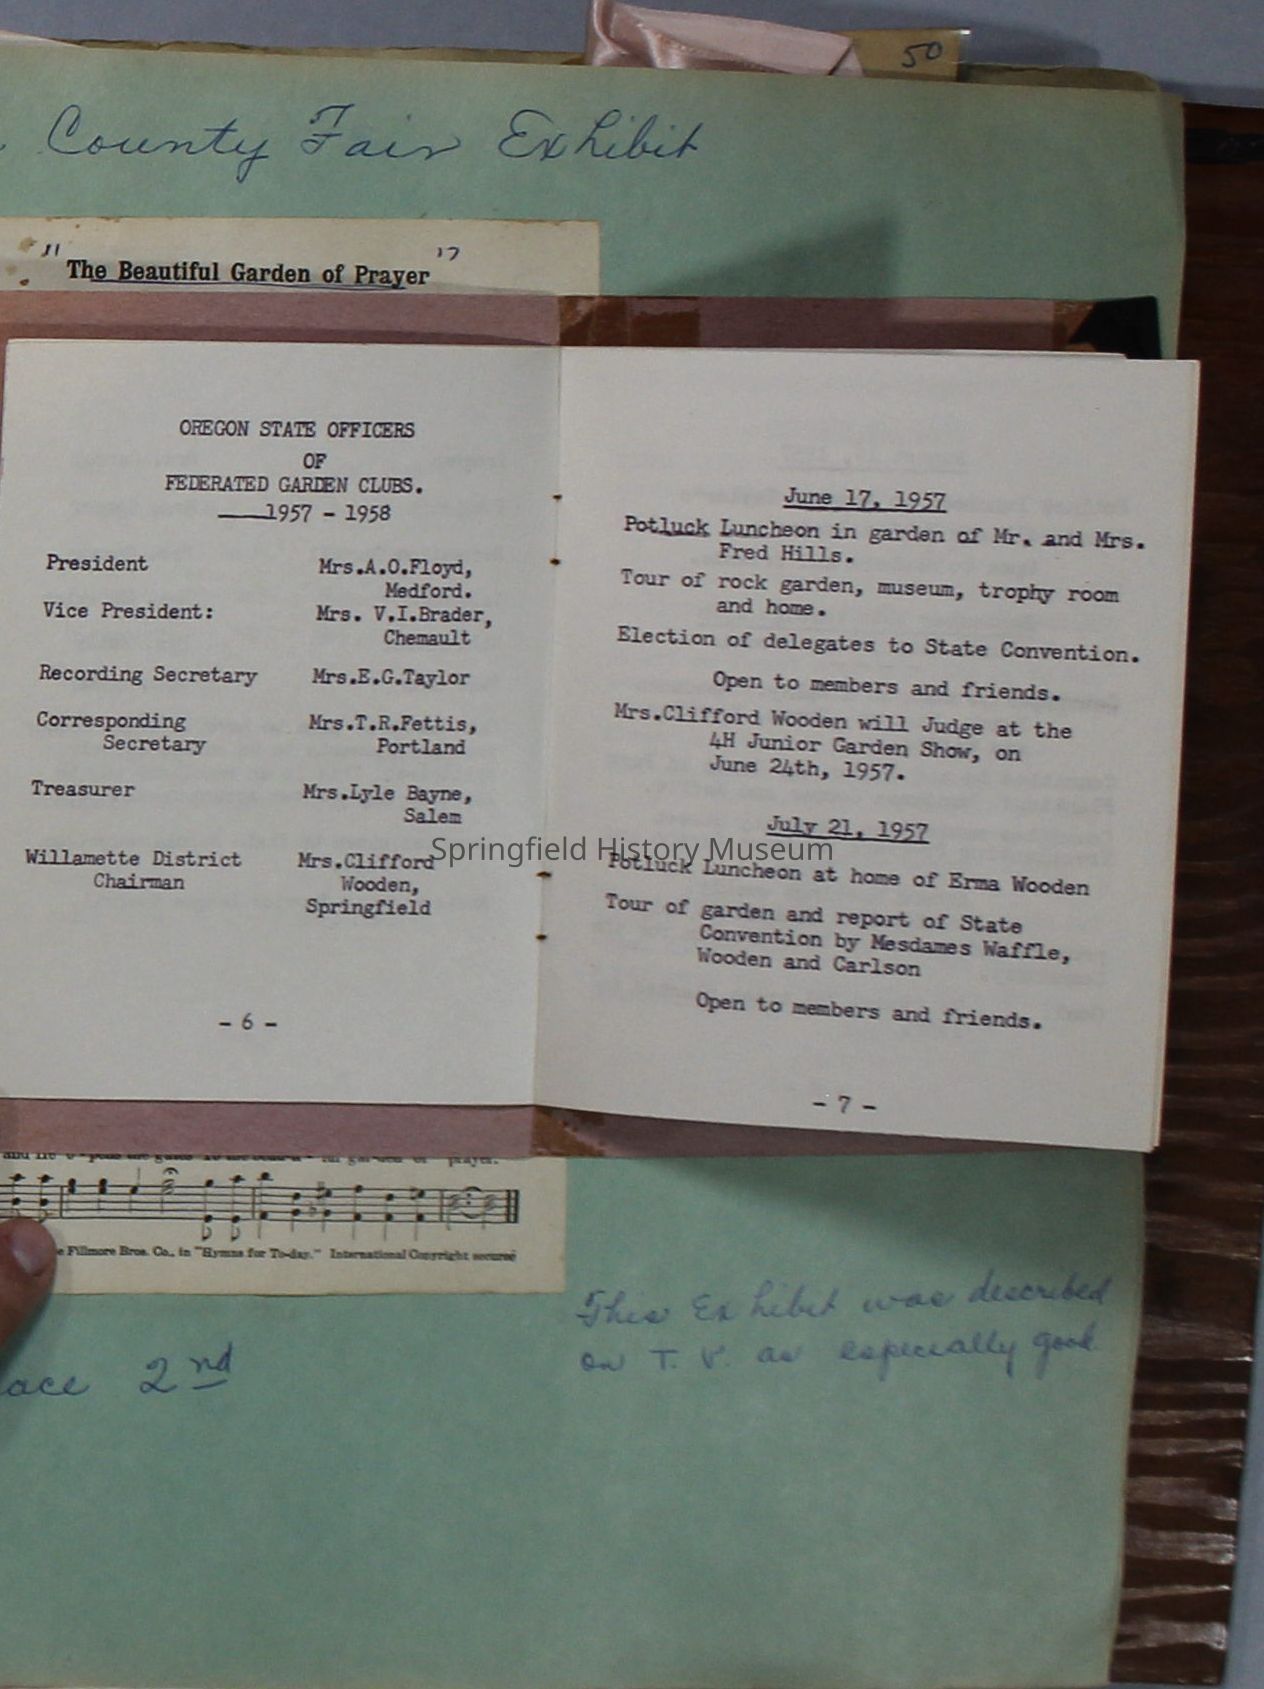 50
County Fair Exhibit
"The Beautiful Garden of Prayer"
OREGON STATE OFFICERS
OF
FEDERATED GARDEN CLUBS.
1957 - 1958
President Mrs.A.O.Floyd,
Medford.
Vice President: Mrs. V.I.Brader,
Chemault
Recording Secretary Mrs.E.G.Taylor
Corresponding Mrs.T.R.Fettis,
Secretary Portland
Treasurer Mrs.Lyle Bayne,
Salem
Willamette District Mrs.Clifford
Chairman Wooden,
Springfield
- 6 -
June 17, 1957
Potluck Luncheon in garden of Mr. and Mrs.
Fred Hills.
Tour of rock garden, museum, trophy room
and home.
Election of delegates to State Convention.
Open to members and friends.
Mrs.Clifford Wooden will Judge at the
4H Junior Garden Show, on
June 24th, 1957.
July 21, 1957
Potluck Luncheon at home of Erma Wooden
Tour of garden and report of State
Convention by Mesdames Waffle,
Wooden and Carlson
Open to members and friends.
- 7 -
Springfield History Museum
prayer.
Fillmore Bros. Co., in "Hymns for To-day." International Copyright secured
This Exhibit was described
on T. V. as especially good
ace 2nd